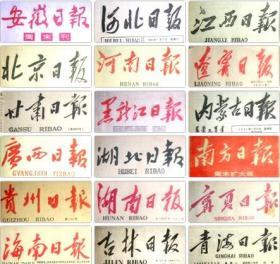 安徽日报
周末刊
河北日報
HEBEI RIBAO
江西日報
JIANGXI RIBAO
北京日報
河南日報
HENAN RIBAO
遼寧日報
LIAONING RIBAO
甘肃日報
GANSU RIBAO
黑龙江日報
内蒙古日報
廣西日報
GVANGJSIH YIZBAO
湖北日報
HUBEI RIBAO
南方日報
周末扩大版
贵州日報
GUIZHOU RIBAO
湖南日報
HUNAN RIBAO
寧夏日報
NINGXIA RIBAO
海南日報
吉林日報
JILIN RIBAO
青海日報
QINGHAI RIBAO